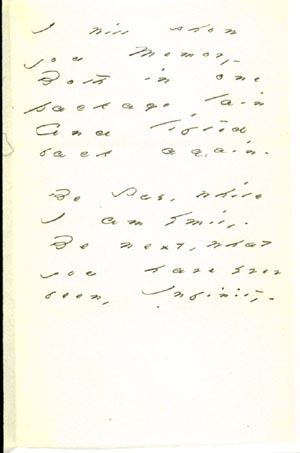 I will show
you Memory -
Both in one
package lain
And lifted
back again -
Be Sue, while
I am Emily -
Be next, what
you have ever
been, Infinity -